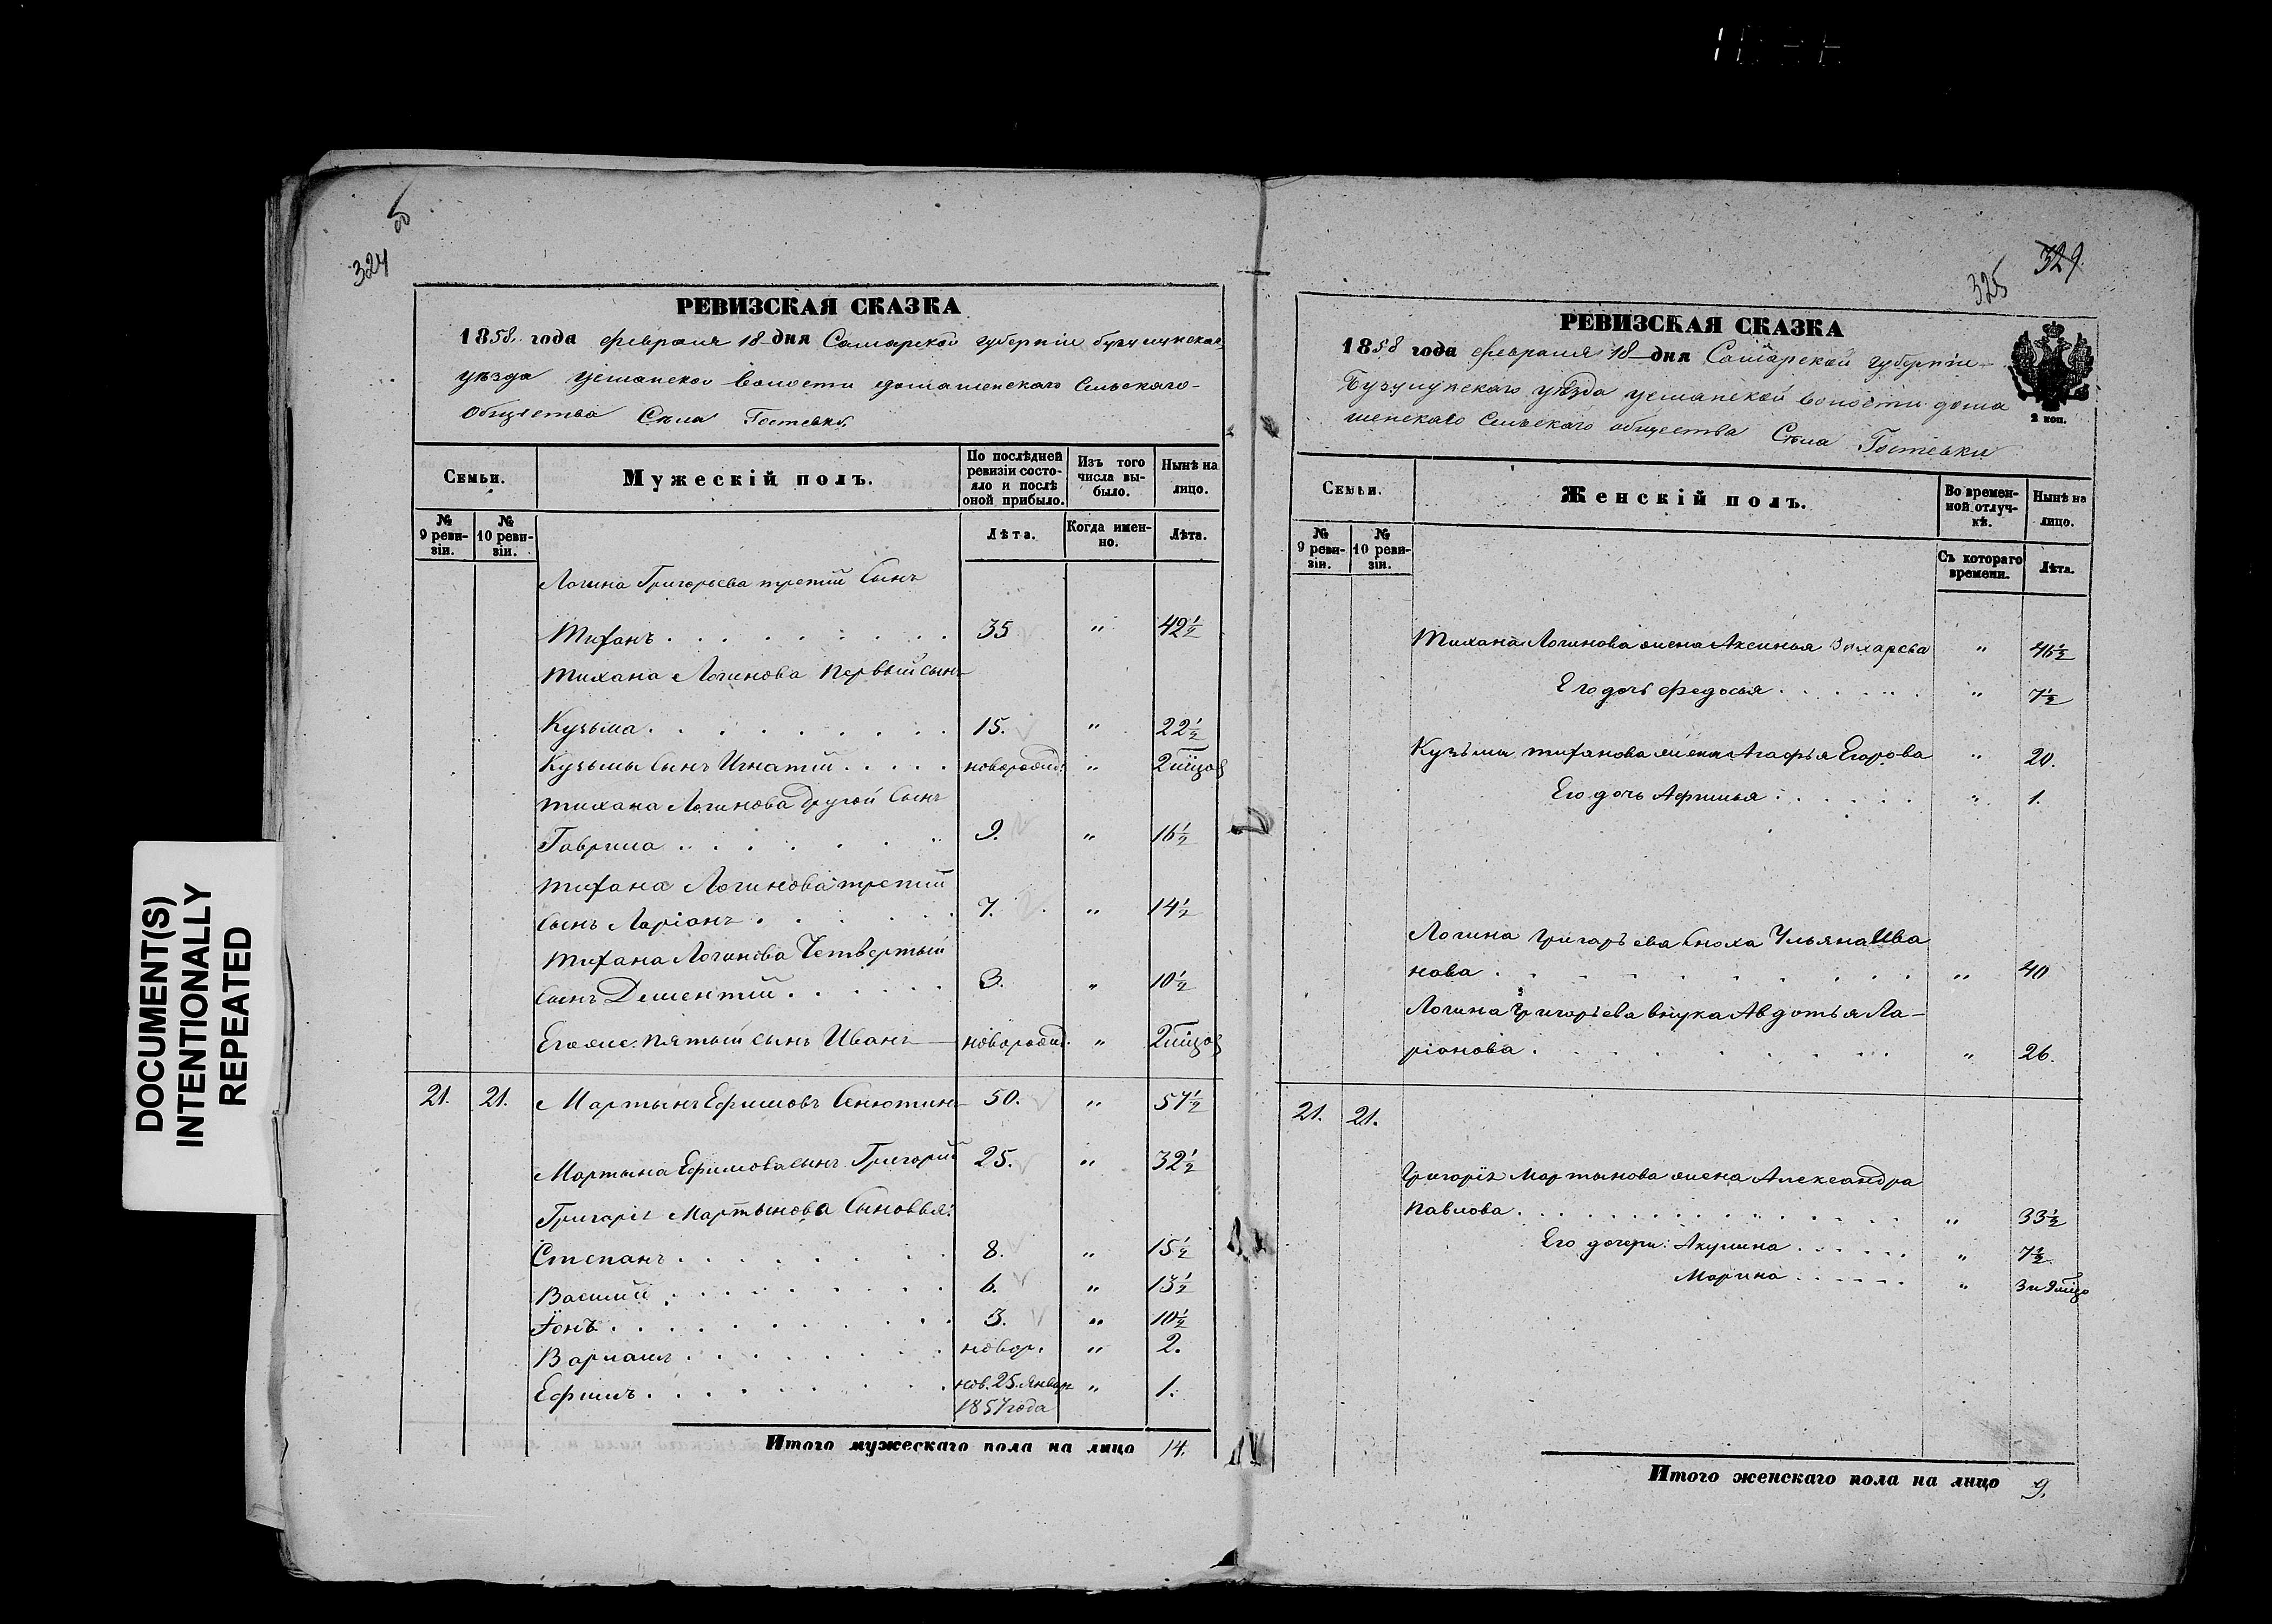 DOCUMENT(S)
INTENTIONALLY
REPEATED
324
об
РЕВИЗСКАЯ СКАЗКА
1858. года февраля 18 дня Самарской губерніи бузулукскаго
уѣзда домашенскаго Сельскаго-
Общества Села Гостевки
Семьи.
Мужескій полъ.
По послѣдней
ревизіи состо-
яло и послѣ
оной прибыло.
Изъ того
числа вы-
было.
Нынѣ на
лицо.
№
9 реви-
зіи.
№
10 реви-
зіи.
Лѣта.
Когда имен-
но.
Лѣта.
Логина Григорьева третій Сынъ
Тиханъ . . . . . . . . 35 " 42½
Тихана Логинова первый сынъ
Кузьма . . . . . . . . 15. " 22½
Кузьмы Сынъ Игнатій . . . . . новорожд: " 2 мѣцов
тихана Логинова другой Сынъ
Гаврила . . . . . . . 9. " 16½
тихана Логинова третій
Сынъ Ларіонъ . . . . . . 7. " 14½
тихана Логинова Четвертый
Сынъ Дементій . . . . . . 3. " 10½
Егоже пятый сынъ Иванъ — новорожд. " 2 мѣцов
21. 21. Мартынъ Ефимовъ Сенютинъ 50. " 57½
Мартына Ефимова сынъ Григорій 25. " 32½
Григорія Мартынова Сыновья:
Степанъ . . . . . . . . 8. " 15½
Василій . . . . . . . . 6. " 13½
Іонъ . . . . . . . . . . 3. " 10½
Варламъ . . . . . . . . новор. " 2.
Ефимъ . . . . . . . . нов. 25. Январ " 1.
1857 года
Итого мужескаго пола на лицо 14.
329.
325
РЕВИЗСКАЯ СКАЗКА
1858 года февраля 18 дня Самарской губерніи
Бузулукскаго уѣзда волости дома
шенскаго Сельскаго общества Села Гостевки
2 коп.
Семьи.
Женскій полъ.
Во времен-
ной отлуч-
кѣ.
Нынѣ на
лицо.
№
9 реви-
зіи.
№
10 реви-
зіи.
Съ котораго
времени.
Лѣта.
Тихана Логинова жена Аксинья Захарова " 46½
Его дочь Федосья . . . . . . " 7½
Кузьмы тиханова жена Агафья Егорова " 20.
Его дочь Афимья . . . . . . " 1.
Логина григорьева сноха Ульяна Ива
нова . . . . . . . . . . . " 40
Логина Григорьева внука Авдотья Ла-
ріонова . . . . . . . . . . " 26.
21. 21.
Григорія Мартынова жена Александра
Павлова . . . . . . . . . . . " 33½
Его дочери: Акулина . . . . . . " 7½
Марина . . . . . . " 3 и 9 мѣцо
Итого женскаго пола на лицо 9.